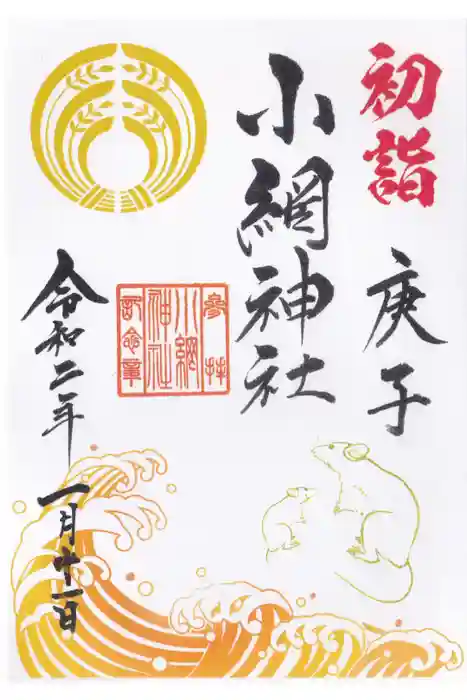 初詣
庚子
小網神社
参拝
小網
神社
記念章
令和二年
一月十一日